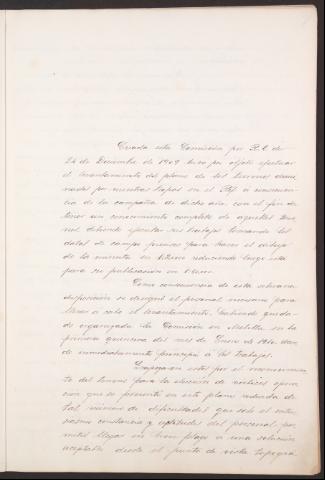 Creada esta Comisión por R.O. de
24 de Diciembre de 1909 tuvo por objeto efectuar
el levantamiento del plano de los terrenos domi-
nados por nuestras tropas en el Rif a consecuen-
cia de la campaña de dicho año, con el fin de
tener un conocimiento completo de aquellos te-
rreno debiendo efectuar sus trabajos tomando los
datos de campo precisos para hacer el dibujo
de la minuta en reduciendo luego esta
para su publicación en
Como consecuencia de esta soberana
disposición se designó el personal necesario para
llevar a cabo el levantamiento, habiendo queda-
do organizada la Comisión en Melilla en la
primera quincena del mes de Enero de 1910 dan-
do inmediatamente principio á los trabajos.
Empezaron estos por el reconocimien-
to del terreno para la elección de vértices opera-
ción que se presentó en este plano rodeada de
tal número de dificultades que solo el entu-
siasmo constancia y aptitudes del personal per-
mitió llegar en breve plazo a una solución
aceptable desde el punto de vista topográ